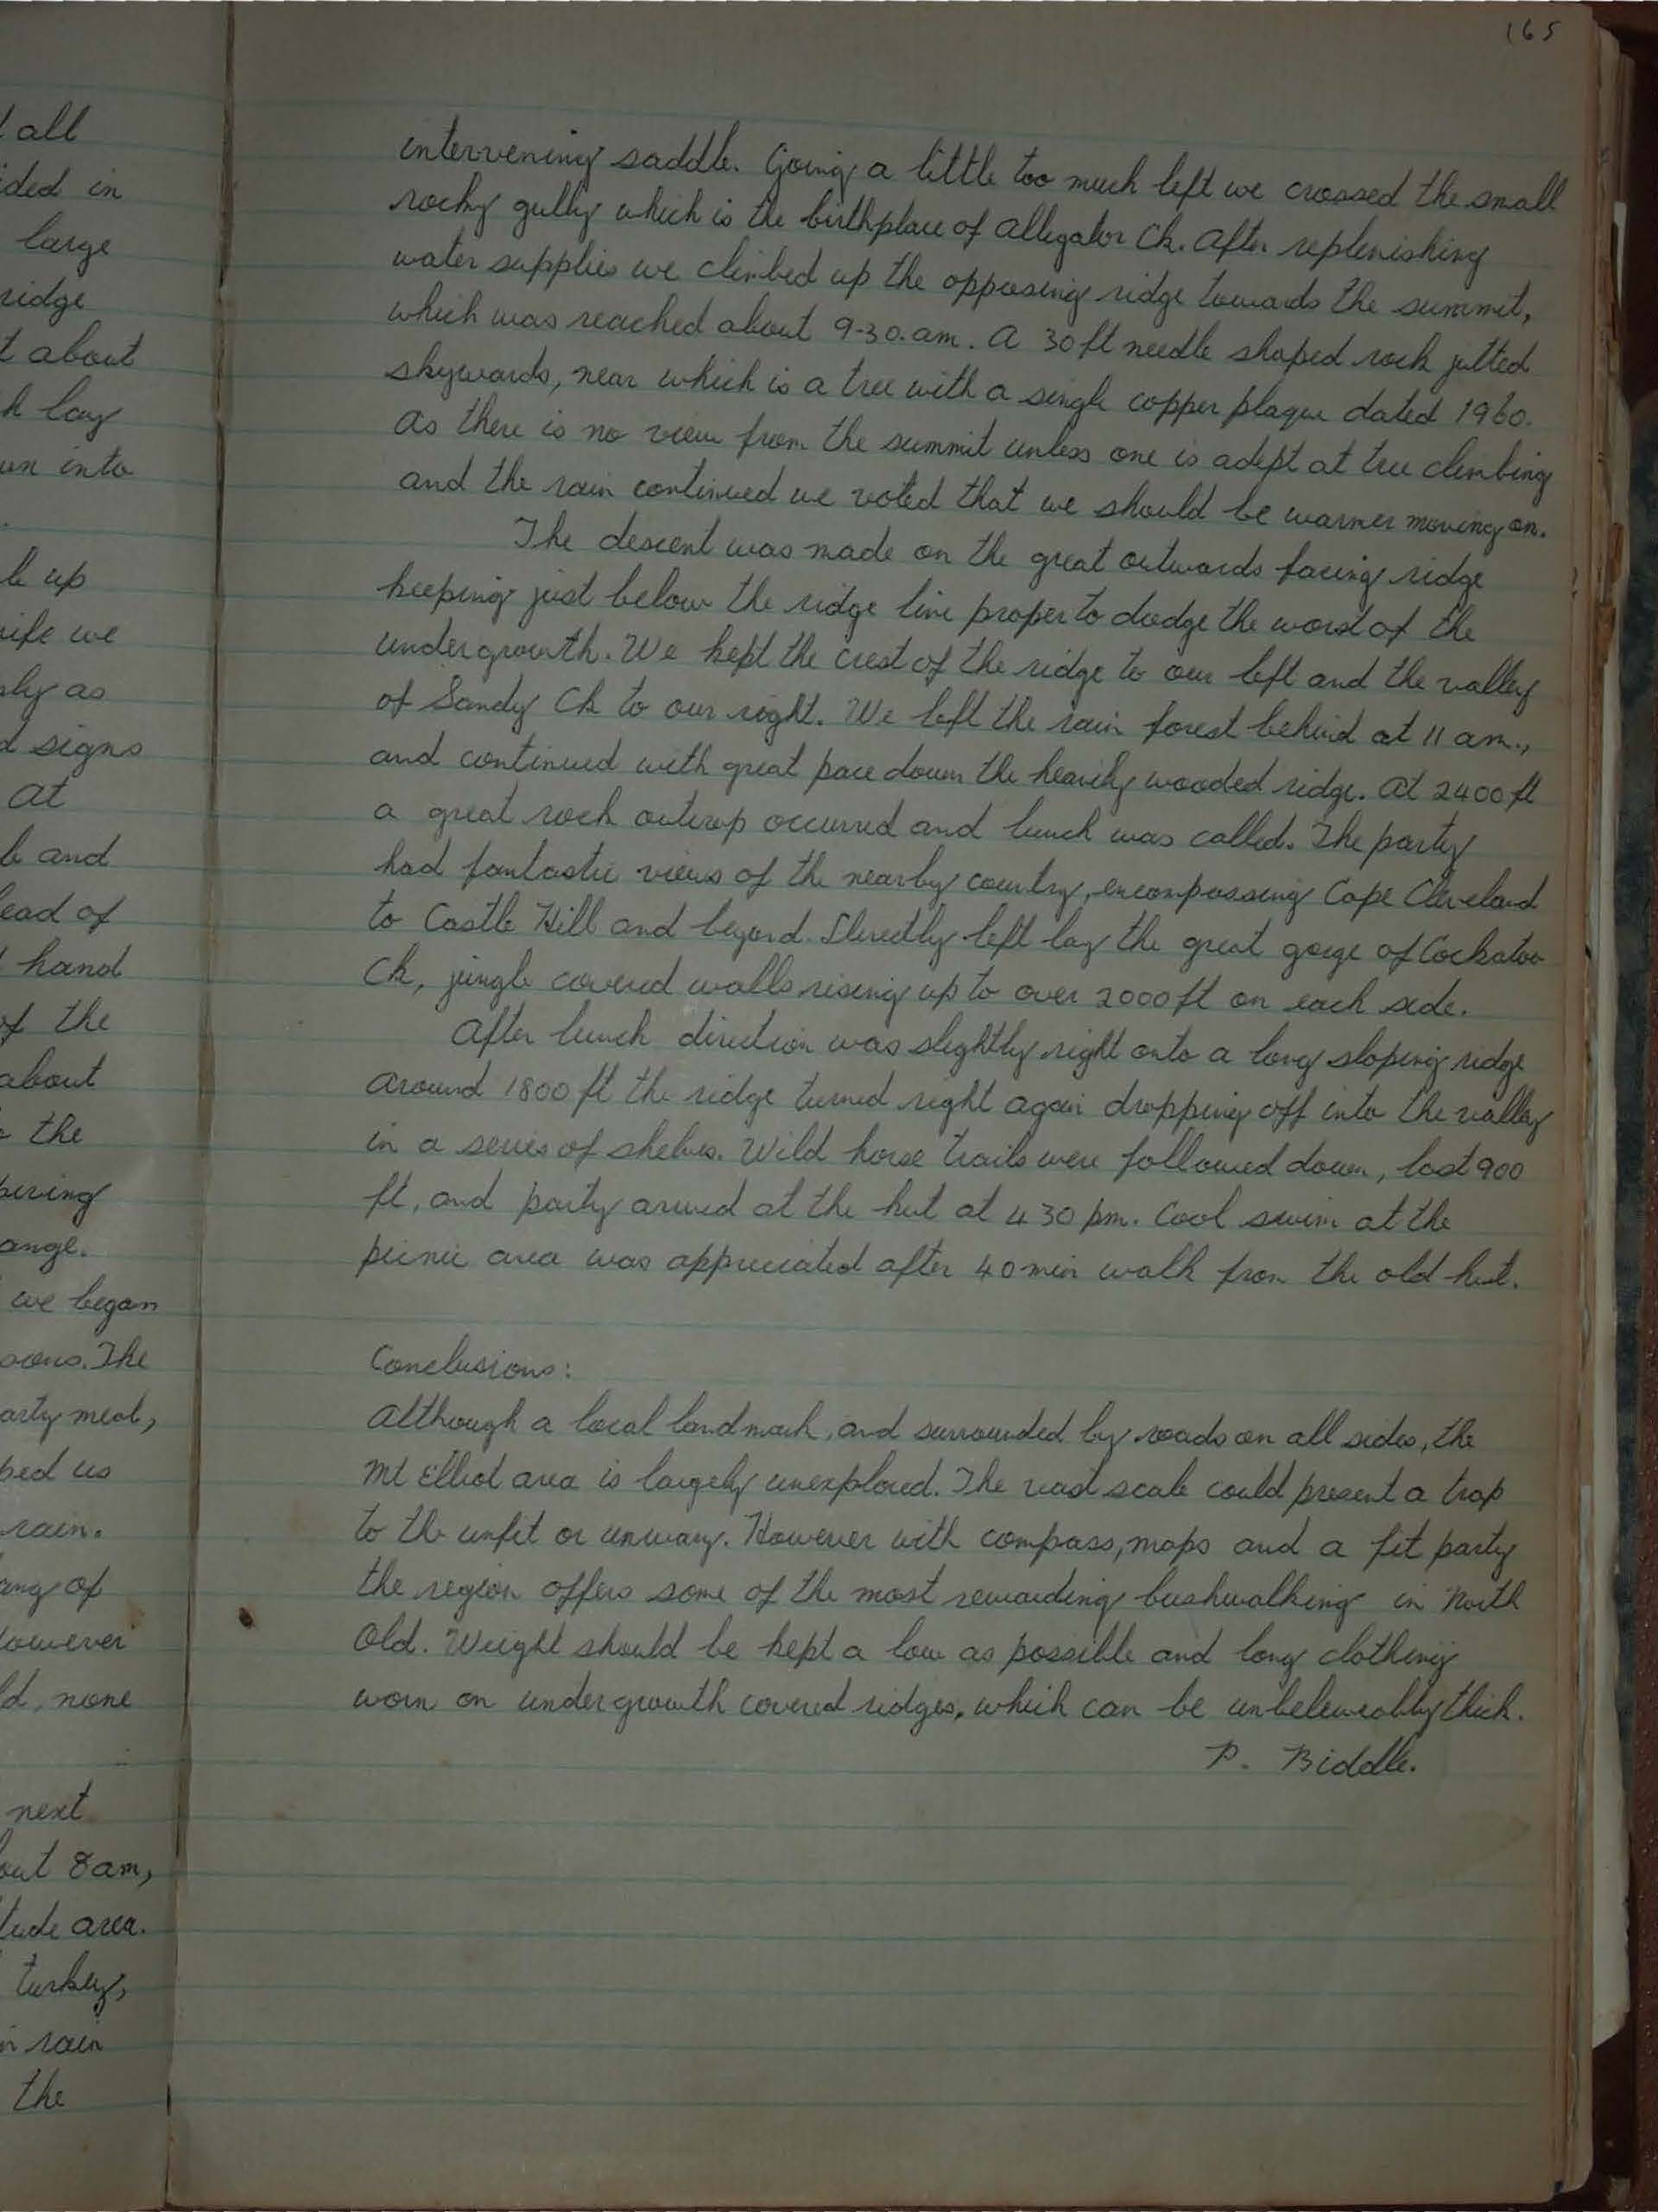 165
all
ded in
large
ridge
t about
h lay
un into
le up
ife we
ly as
d signs
at
le and
ead of
hand
of the
about
the
ange.
we began
The
arty meal,
ped us
rain.
ing of
However
ld, none
next
out 8am,
tude area.
turkey,
rain
the
intervening saddle. Going a little too much left we crossed the small
rocky gully which is the birthplace of Alligator Ck. After replenishing
water supplies we climbed up the opposing ridge towards the summit,
which was reached about 9-30.am. A 30 ft needle shaped rock jutted
skywards, near which is a tree with a single copper plaque dated 1960.
As there is no view from the summit unless one is adept at tree climbing
and the rain continued we voted that we should be warmer moving on.
The descent was made on the great outwards facing ridge
keeping just below the ridge line proper to dodge the worst of the
undergrowth. We kept the crest of the ridge to our left and the valley
of Sandy Ck to our right. We left the rain forest behind at 11 am.,
and continued with great pace down the heavily wooded ridge. At 2400 ft
a great rock outcrop occurred and lunch was called. The party
had fantastic views of the nearby country, encompassing Cape Cleveland
to Castle Hill and beyond. Directly left lay the great gorge of Cockatoo
Ck, jungle covered walls rising up to over 2000 ft on each side.
After lunch direction was slightly right onto a long sloping ridge
around 1800 ft the ridge turned right again dropping off into the valley
in a series of shelves. Wild horse trails were followed down, last 900
ft, and party arived at the hut at 4 30 pm. Cool swim at the
picnic area was appreciated after 40 min walk from the old hut.
Conclusions:
Although a local landmark, and surrounded by roads on all sides, the
Mt Elliot area is largely unexplored. The vast scale could present a trap
to the unfit or unwary. However with compass, maps and a fit party
the region offers some of the most rewarding bushwalking in North
Qld. Weight should be kept a low as possible and long clothing
worn on undergrowth covered ridges, which can be unbeleiveably thick.
P. Biddle.